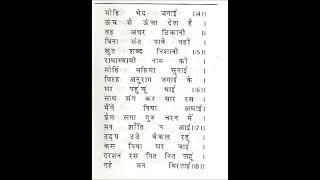 मोहि भेद जनाई ॥4॥
ऊंच से ऊंचा देश है ।
वह अधर ठिकानी ॥
बिना संत पावे नहीं ।
सुत शब्द निशानी ॥5॥
राधास्वामी नाम की ।
मोहिं महिमा सुनाई ॥
विरह अनुराग जगाई के ।
घर पहुंचूं धाई ॥6॥
साध संग कर सार रस ।
मैंने पिया अघाई ॥
प्रेम लगा गुरु चरन में ।
मन शांति न आई ॥7॥
तड़प उठे बेकल रहूं ।
कस पिया घर जाई ।
दरशन रस नित नित लहूं ।
गहे मन थिरताई ॥8॥